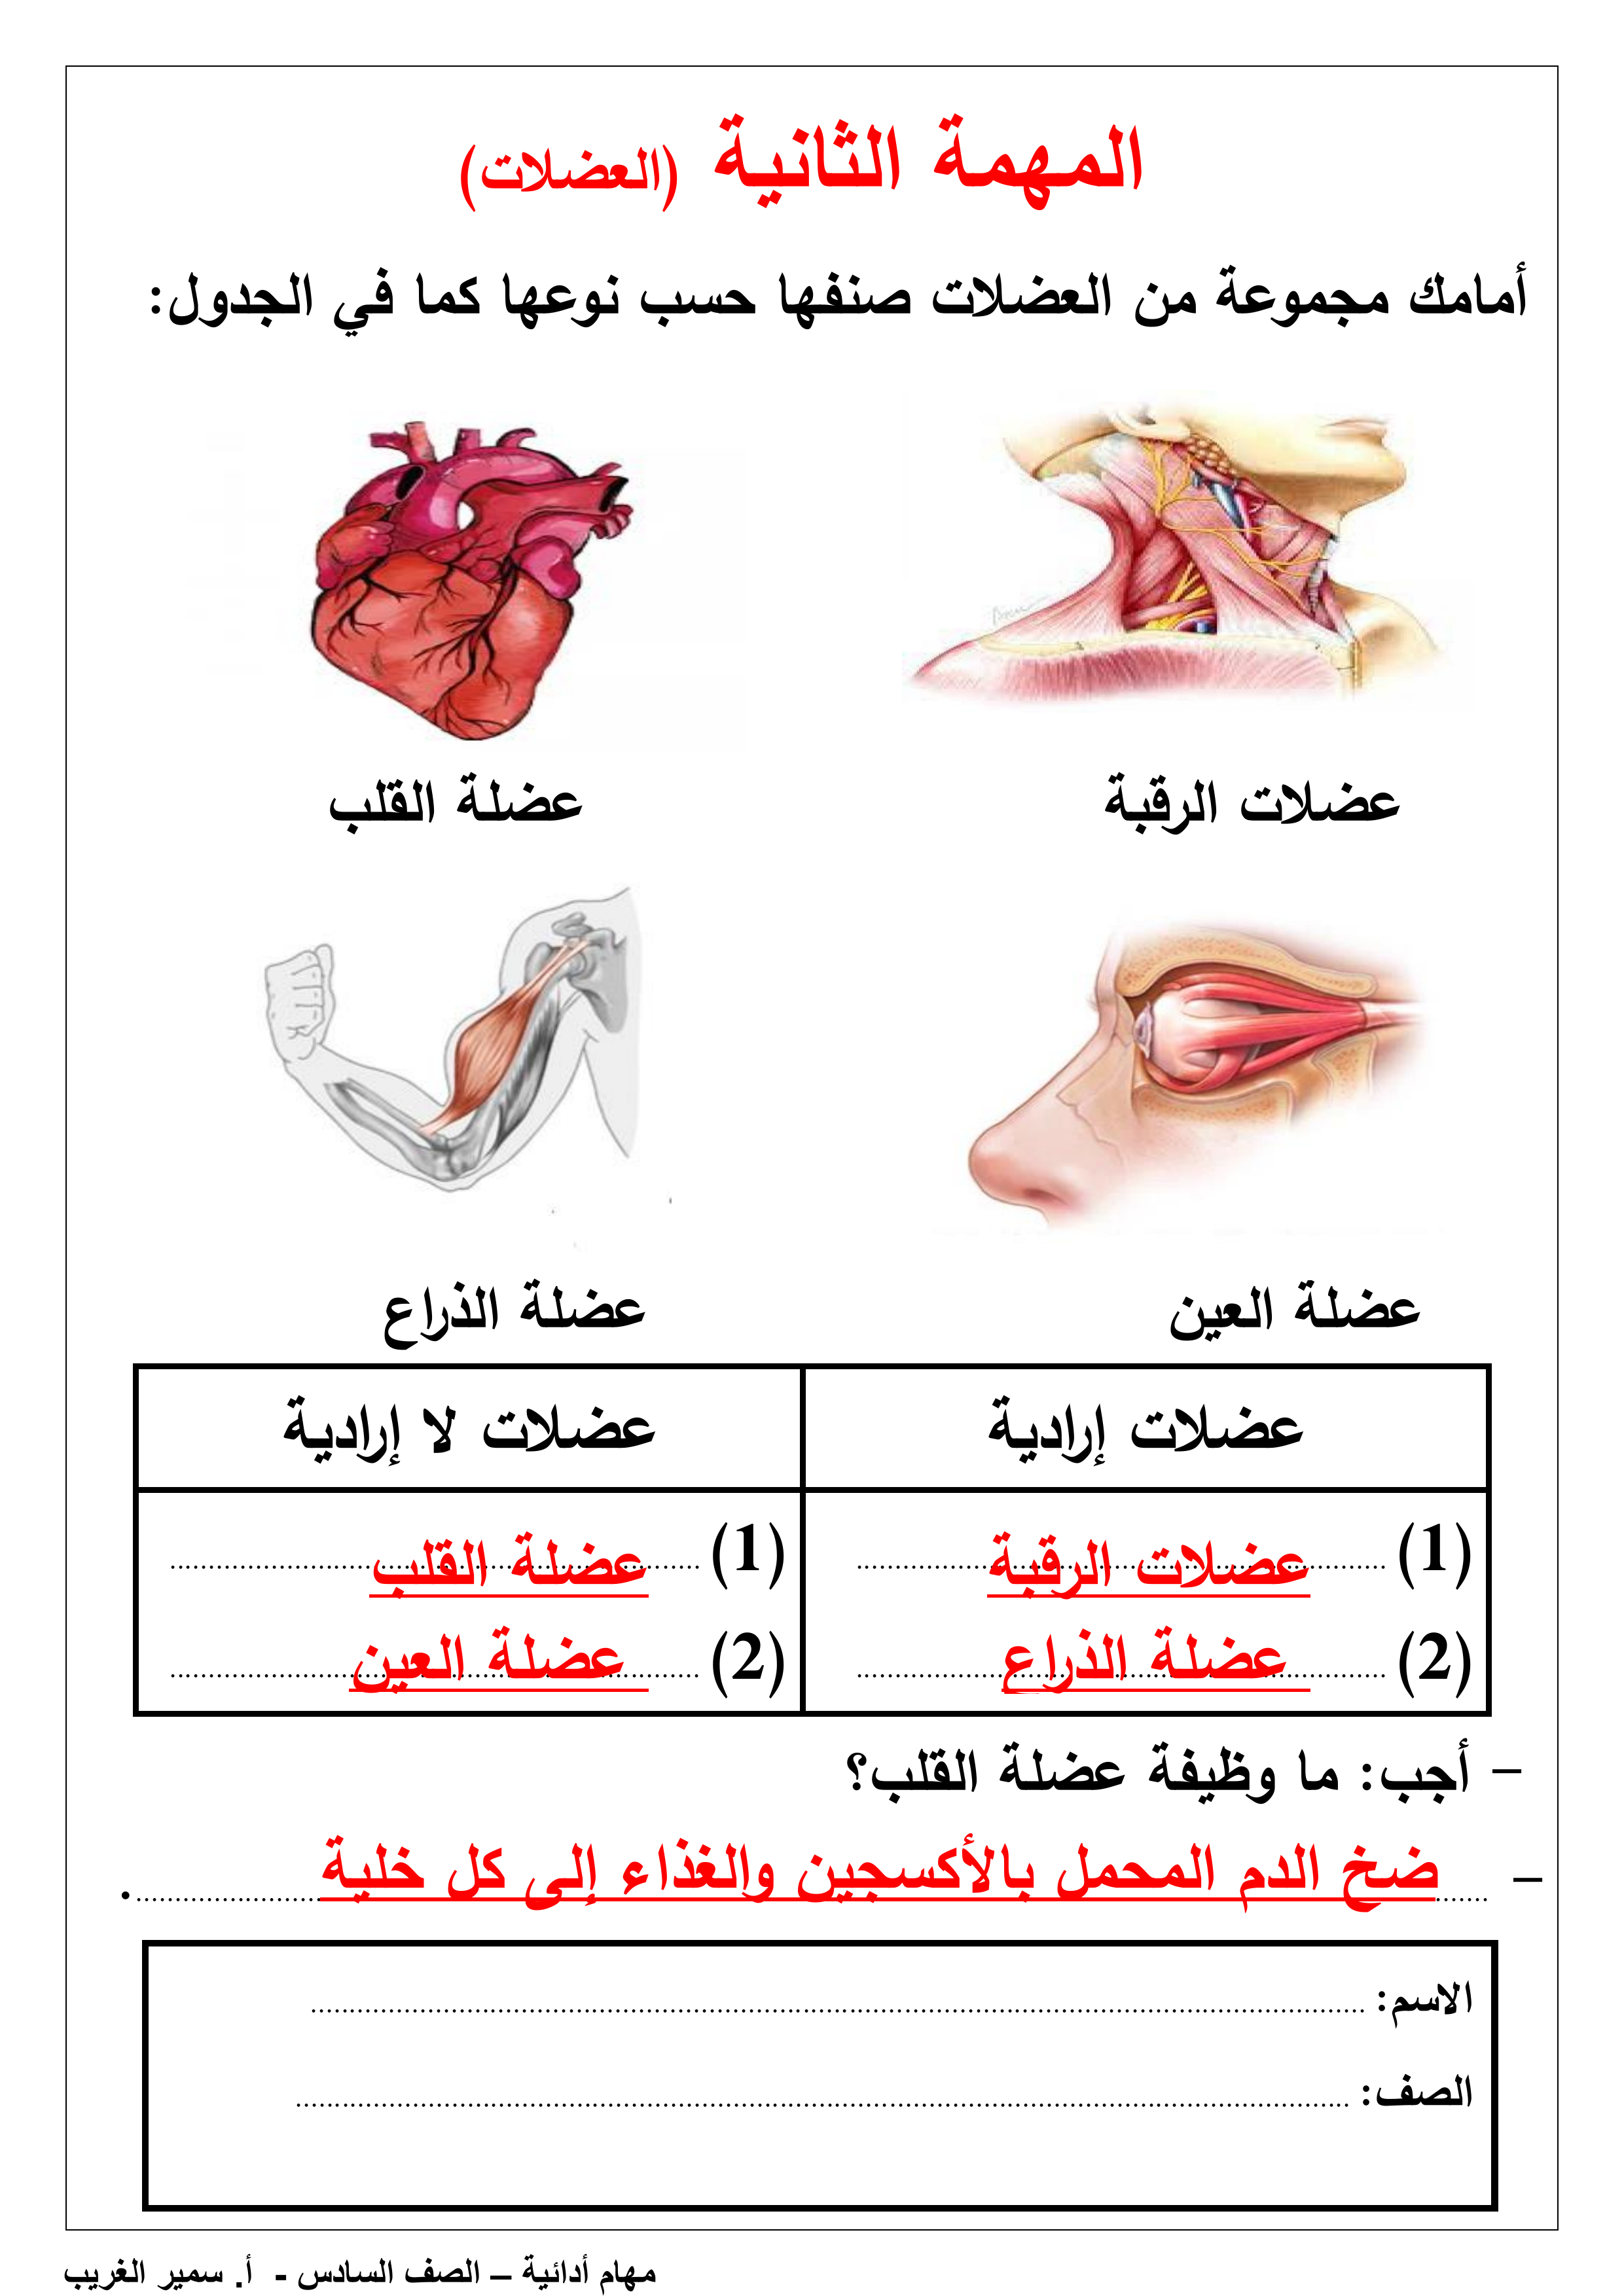 المهمة الثانية (العضلات)
أمامك مجموعة من العضلات صنفها حسب نوعها كما في الجدول:
عضلات الرقبة
عضلة القلب
عضلة العين
عضلة الذراع
عضلات إرادية
عضلات لا إرادية
(1) عضلات الرقبة
(2) عضلة الذراع
(1) عضلة القلب
(2) عضلة العين
– أجب: ما وظيفة عضلة القلب؟
– ضخ الدم المحمل بالأكسجين والغذاء إلى كل خلية.
الاسم:
الصف:
مهام أدائية – الصف السادس - أ. سمير الغريب